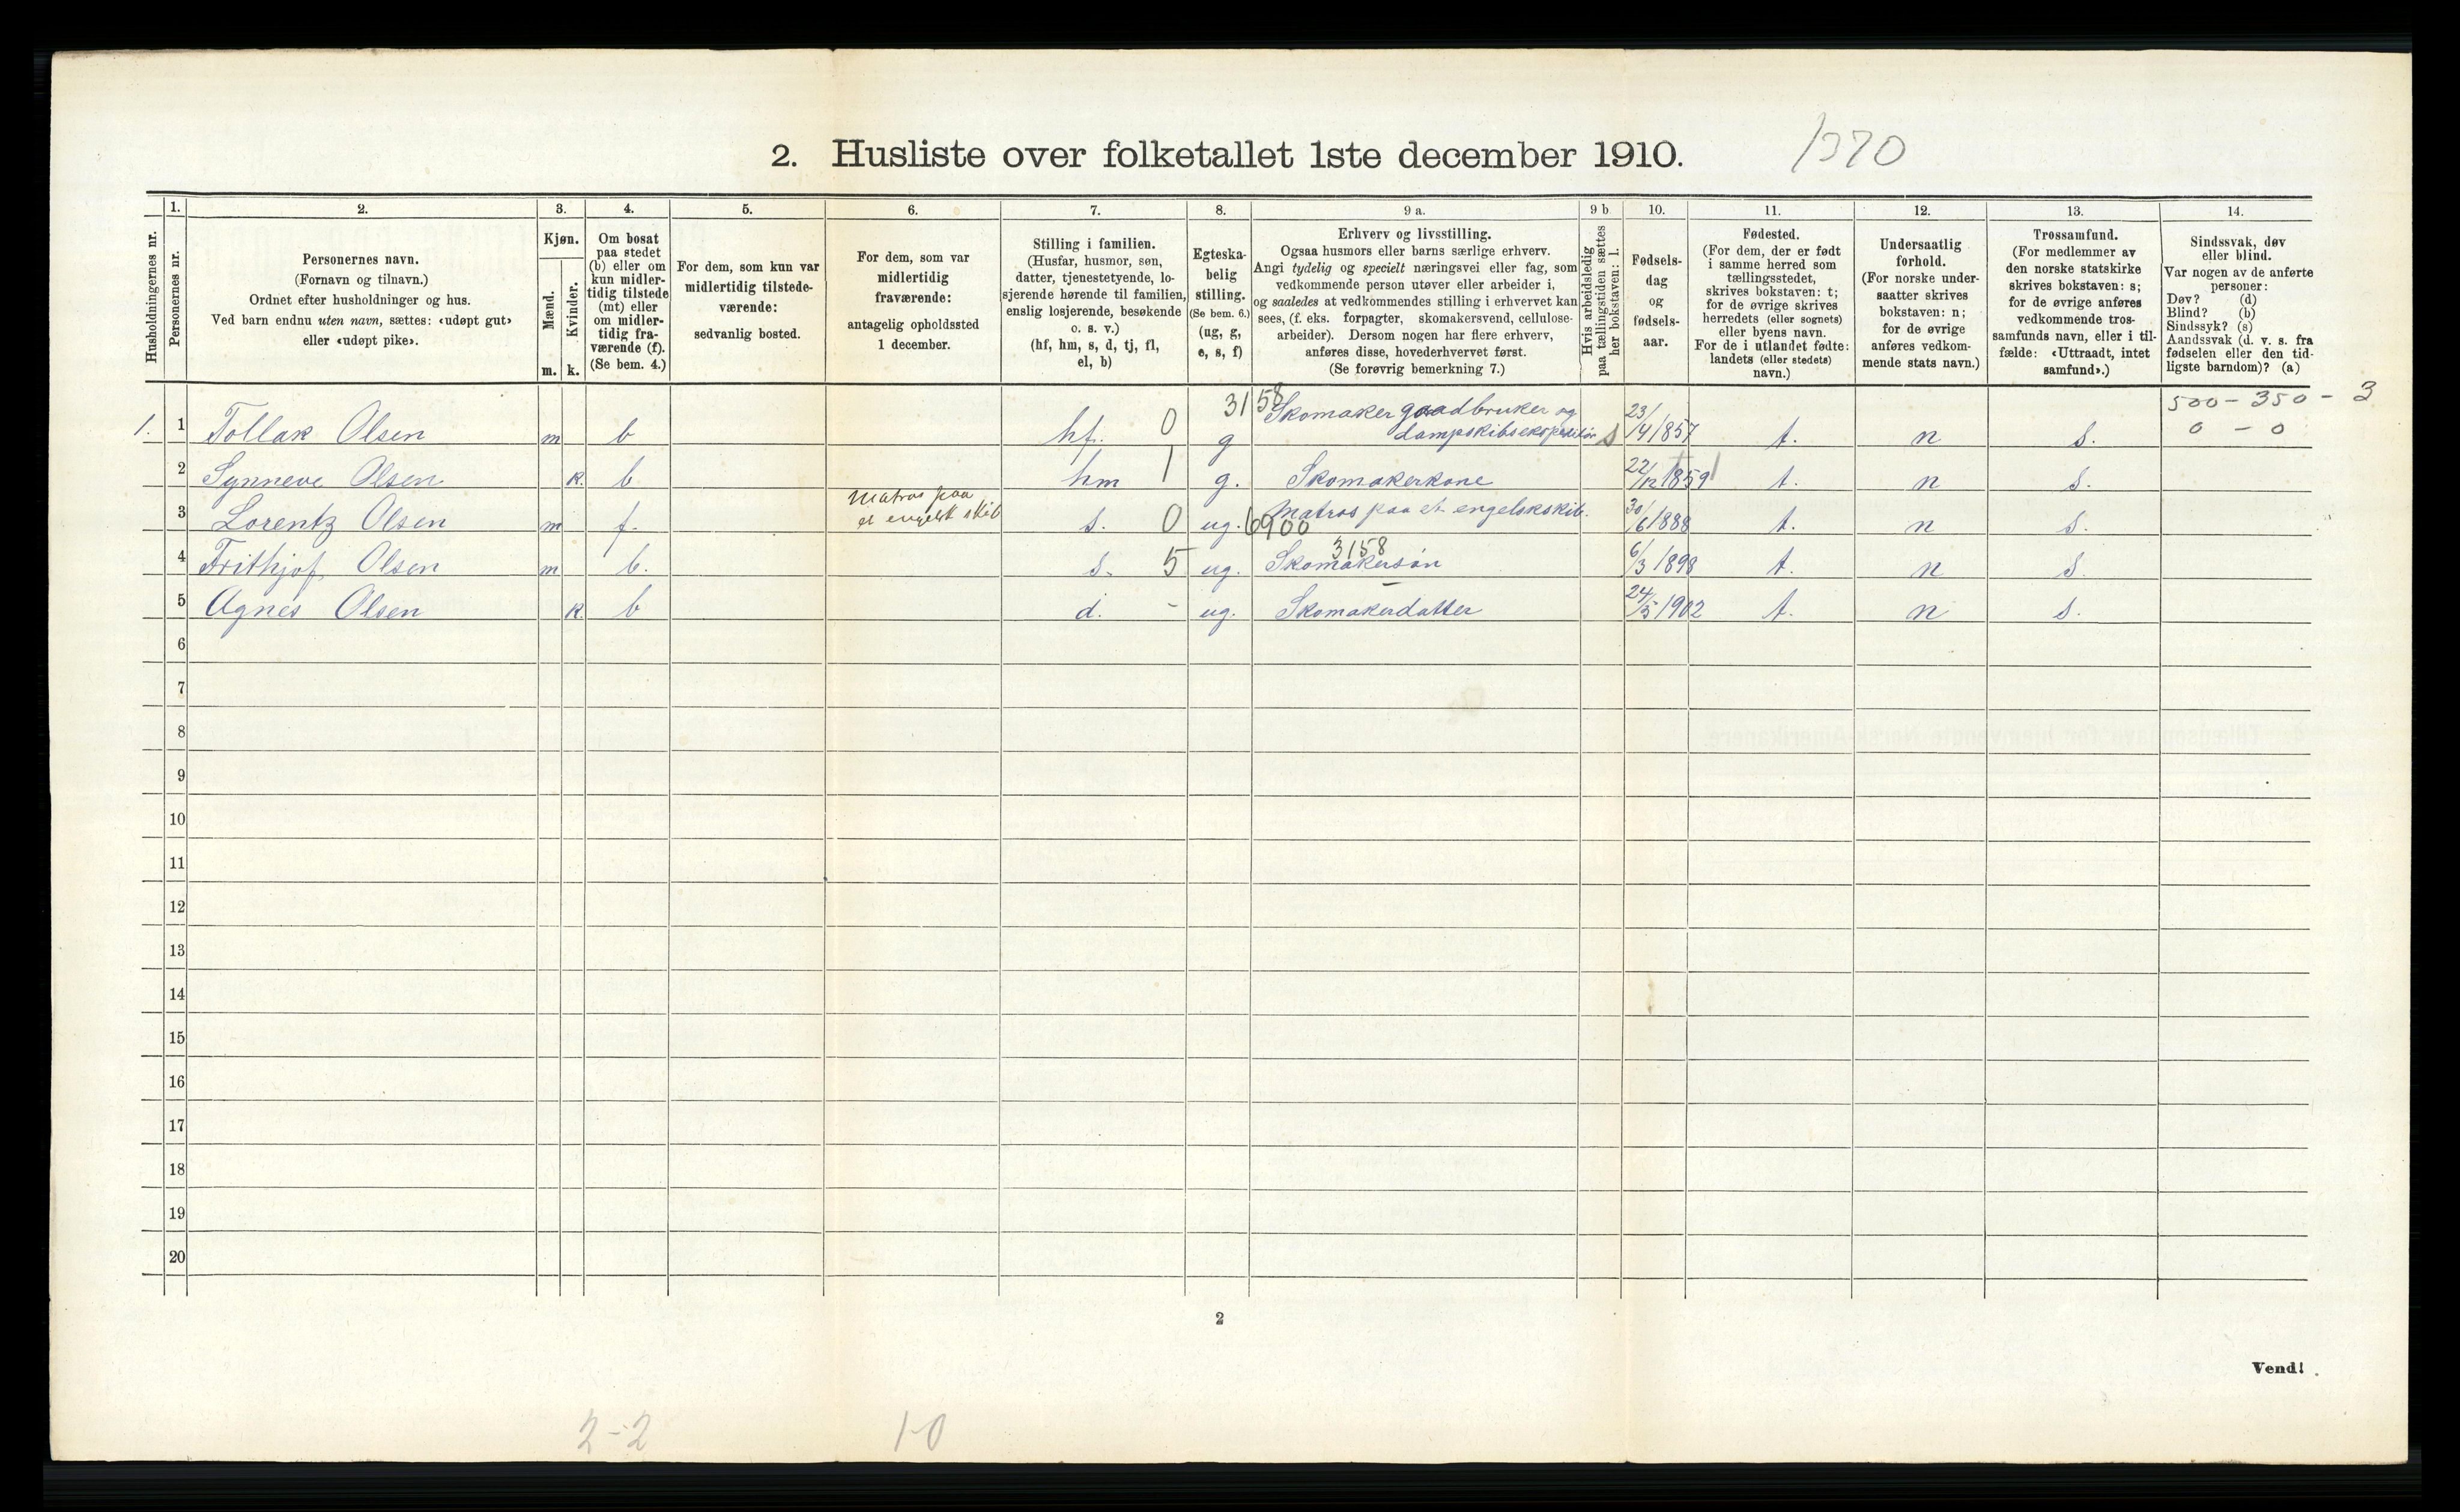 2. Husliste over folketallet 1ste december 1910.
1370
Husholdningernes nr.
1.
Personernes nr.
2.
Personernes navn.
(Fornavn og tilnavn.)
Ordnet efter husholdninger og hus.
Ved barn endnu uten navn, sættes: «udøpt gut»
eller «udøpt pike».
3.
Kjøn.
Mænd.
Kvinder.
m. k.
4.
Om bosat
paa stedet
(b) eller om
kun midler-
tidig tilstede
(mt) eller
om midler-
tidig fra-
værende (f).
(Se bem. 4.)
5.
For dem, som kun var
midlertidig tilstede-
værende:
sedvanlig bosted.
6.
For dem, som var
midlertidig
fraværende:
antagelig opholdssted
1 december.
7.
Stilling i familien.
(Husfar, husmor, søn,
datter, tjenestetyende, lo-
sjerende hørende til familien,
enslig losjerende, besøkende
o. s. v.)
(hf, hm, s, d, tj, fl,
el, b)
8.
Egteska-
belig
stilling.
(Se bem. 6.)
(ug, g,
e, s, f)
9 a.
Erhverv og livsstilling.
Ogsaa husmors eller barns særlige erhverv.
Angi tydelig og specielt næringsvei eller fag, som
vedkommende person utøver eller arbeider i,
og saaledes at vedkommendes stilling i erhvervet kan
sees, (f. eks. forpagter, skomakersvend, cellulose-
arbeider). Dersom nogen har flere erhverv,
anføres disse, hovederhvervet først.
(Se forøvrig bemerkning 7.)
9 b
Hvis arbeidsledig
paa tællingstiden sættes
her bokstaven: l.
10.
Fødsels-
dag
og
fødsels-
aar.
11.
Fødested.
(For dem, der er født
i samme herred som
tællingsstedet,
skrives bokstaven: t;
for de øvrige skrives
herredets (eller sognets)
eller byens navn.
For de i utlandet fødte:
landets (eller stedets)
navn.)
12.
Undersaatlig
forhold.
(For norske under-
saatter skrives
bokstaven: n;
for de øvrige
anføres vedkom-
mende stats navn.)
13.
Trossamfund.
(For medlemmer av
den norske statskirke
skrives bokstaven: s;
for de øvrige anføres
vedkommende tros-
samfunds navn, eller i til-
fælde: «Uttraadt, intet
samfund».)
14.
Sindssvak, døv
eller blind.
Var nogen av de anførte
personer:
Døv? (d)
Blind? (b)
Sindssyk? (s)
Aandssvak (d. v. s. fra
fødselen eller den tid-
ligste barndom)? (a)
3158
500 - 350 - 3
0 - 0
1. 1 Tollak Olsen m b hf. 0 g Skomaker gaadbruker og
Dampskibsekspeditør s 23/4 1857 t. n s.
2 Synneve Olsen k. b hm 1 g. Skomakerkone 22/12 1859 t. n s.
3 Lorentz Olsen m f. Matros paa
et engelsk skib s. 0 ug. 6900 Matros paa et engelskskib. 30/6 1888 t. n s.
4 Frithjof Olsen m b. s. 5 ug. 3158 Skomakersøn 6/3 1898 t. n s.
5 Agnes Olsen k. b d. - ug. Skomakerdatter 24/5 1902 t. n s.
6
7
8
9
10
11
12
13
14
15
16
17
18
19
20
2
Vend!
2-2
1-0